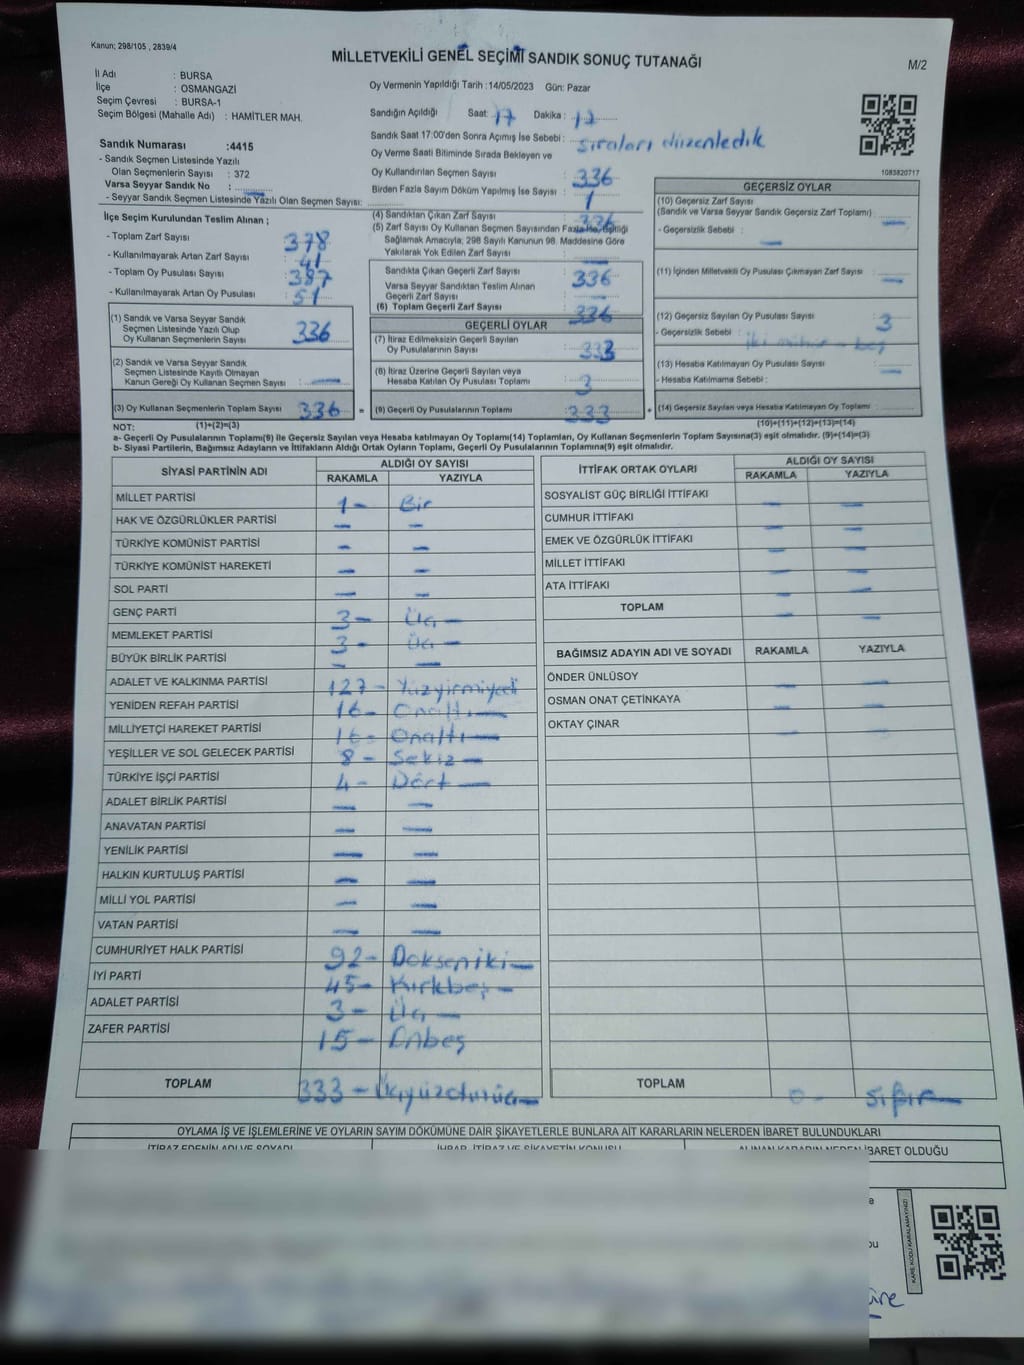 Kanun; 298/105 , 2839/4
MİLLETVEKİLİ GENEL SEÇİMİ SANDIK SONUÇ TUTANAĞI
M/2
İl Adı : BURSA
İlçe : OSMANGAZİ
Seçim Çevresi : BURSA-1
Seçim Bölgesi (Mahalle Adı) : HAMİTLER MAH.
Oy Vermenin Yapıldığı Tarih :14/05/2023 Gün: Pazar
Sandığın Açıldığı Saat: 17 Dakika : 17
Sandık Saat 17:00'den Sonra Açımış İse Sebebi : sıraları düzenledik
Sandık Numarası :4415
- Sandık Seçmen Listesinde Yazılı
Olan Seçmenlerin Sayısı : 372
Varsa Seyyar Sandık No : —
- Seyyar Sandık Seçmen Listesinde Yazılı Olan Seçmen Sayısı:
Oy Verme Saati Bitiminde Sırada Bekleyen ve
Oy Kullandırılan Seçmen Sayısı : 336
Birden Fazla Sayım Döküm Yapılmış İse Sayısı : 1
1083820717
İlçe Seçim Kurulundan Teslim Alınan ;
- Toplam Zarf Sayısı : 378
- Kullanılmayarak Artan Zarf Sayısı : 41
- Toplam Oy Pusulası Sayısı : 387
- Kullanılmayarak Artan Oy Pusulası : 51
(1) Sandık ve Varsa Seyyar Sandık
Seçmen Listesinde Yazılı Olup
Oy Kullanan Seçmenlerin Sayısı : 336
(2) Sandık ve Varsa Seyyar Sandık
Seçmen Listesinde Kayıtlı Olmayan
Kanun Gereği Oy Kullanan Seçmen Sayısı : —
(3) Oy Kullanan Seçmenlerin Toplam Sayısı : 336 =
(4) Sandıktan Çıkan Zarf Sayısı : 336
(5) Zarf Sayısı Oy Kullanan Seçmen Sayısından Fazla İse, Eşitliği
Sağlamak Amacıyla; 298 Sayılı Kanunun 98. Maddesine Göre
Yakılarak Yok Edilen Zarf Sayısı :
Sandıkta Çıkan Geçerli Zarf Sayısı : 336
Varsa Seyyar Sandıktan Teslim Alınan
Geçerli Zarf Sayısı : —
(6) Toplam Geçerli Zarf Sayısı : 336
GEÇERLİ OYLAR
(7) İtiraz Edilmeksizin Geçerli Sayılan
Oy Pusulalarının Sayısı : 333
(8) İtiraz Üzerine Geçerli Sayılan veya
Hesaba Katılan Oy Pusulası Toplamı : 3
(9) Geçerli Oy Pusulalarının Toplamı : 333 +
GEÇERSİZ OYLAR
(10) Geçersiz Zarf Sayısı
(Sandık ve Varsa Seyyar Sandık Geçersiz Zarf Toplamı) : —
- Geçersizlik Sebebi : —
(11) İçinden Milletvekili Oy Pusulası Çıkmayan Zarf Sayısı : —
(12) Geçersiz Sayılan Oy Pusulası Sayısı : 3
- Geçersizlik Sebebi : iki mühür -
(13) Hesaba Katılmayan Oy Pusulası Sayısı : —
- Hesaba Katılmama Sebebi :
(14) Geçersiz Sayılan veya Hesaba Katılmayan Oy Toplamı :
NOT: (1)+(2)=(3) (10)+(11)+(12)+(13)=(14)
a- Geçerli Oy Pusulalarının Toplamı(9) ile Geçersiz Sayılan veya Hesaba katılmayan Oy Toplamı(14) Toplamları, Oy Kullanan Seçmenlerin Toplam Sayısına(3) eşit olmalıdır. (9)+(14)=(3)
b- Siyasi Partilerin, Bağımsız Adayların ve İttifakların Aldığı Ortak Oyların Toplamı, Geçerli Oy Pusulalarının Toplamına(9) eşit olmalıdır.
SİYASİ PARTİNİN ADI ALDIĞI OY SAYISI
RAKAMLA YAZIYLA
MİLLET PARTİSİ 1- Bir
HAK VE ÖZGÜRLÜKLER PARTİSİ — —
TÜRKİYE KOMÜNİST PARTİSİ — —
TÜRKİYE KOMÜNİST HAREKETİ — —
SOL PARTİ — —
GENÇ PARTİ 3- Üç —
MEMLEKET PARTİSİ 3- Üç —
BÜYÜK BİRLİK PARTİSİ — —
ADALET VE KALKINMA PARTİSİ 127- Yüzyirmiyedi
YENİDEN REFAH PARTİSİ 16- Onaltı —
MİLLİYETÇİ HAREKET PARTİSİ 16- Onaltı —
YEŞİLLER VE SOL GELECEK PARTİSİ 8- Sekiz —
TÜRKİYE İŞÇİ PARTİSİ 4- Dört —
ADALET BİRLİK PARTİSİ — —
ANAVATAN PARTİSİ — —
YENİLİK PARTİSİ — —
HALKIN KURTULUŞ PARTİSİ — —
MİLLİ YOL PARTİSİ — —
VATAN PARTİSİ — —
CUMHURİYET HALK PARTİSİ 92- Doksaniki —
İYİ PARTİ 45- Kırkbeş -
ADALET PARTİSİ 3- Üç —
ZAFER PARTİSİ 15- Onbeş
TOPLAM 333- Üçyüzotuzüç —
İTTİFAK ORTAK OYLARI ALDIĞI OY SAYISI
RAKAMLA YAZIYLA
SOSYALİST GÜÇ BİRLİĞİ İTTİFAKI — —
CUMHUR İTTİFAKI — —
EMEK VE ÖZGÜRLÜK İTTİFAKI — —
MİLLET İTTİFAKI — —
ATA İTTİFAKI — —
TOPLAM — —
BAĞIMSIZ ADAYIN ADI VE SOYADI RAKAMLA YAZIYLA
ÖNDER ÜNLÜSOY — —
OSMAN ONAT ÇETİNKAYA — —
OKTAY ÇINAR — —
TOPLAM 0- sıfır —
OYLAMA İŞ VE İŞLEMLERİNE VE OYLARIN SAYIM DÖKÜMÜNE DAİR ŞİKAYETLERLE BUNLARA AİT KARARLARIN NELERDEN İBARET BULUNDUKLARI
İTİRAZ EDENİN ADI VE SOYADI İHBAR, İTİRAZ VE ŞİKAYETİN KONUSU ALINAN KARARIN NEDEN İBARET OLDUĞU
KARE KODU KARALAMAYINIZ!